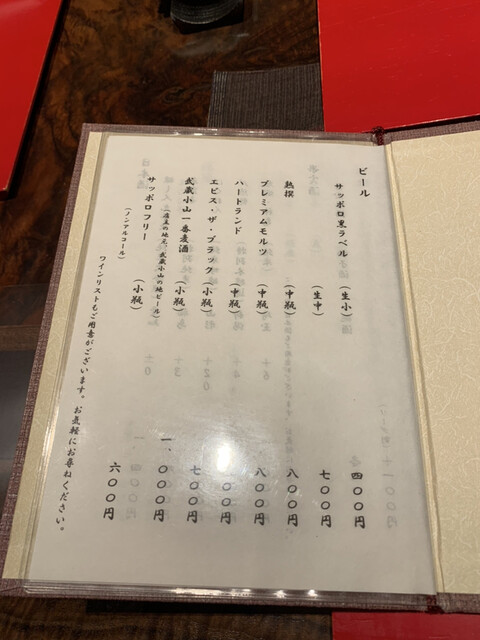 ビール
サッポロ黒ラベル （生小） 四〇〇円
（生中） 七〇〇円
熱撰 （中瓶） 八〇〇円
プレミアムモルツ （中瓶） 八〇〇円
ハートランド （中瓶） 〇〇円
エビス・ザ・ブラック （小瓶） 七〇〇円
武蔵小山一番麦酒 （小瓶） 一、〇〇〇円
（店主の地元、武蔵小山の地ビール）
サッポロフリー （小瓶） 六〇〇円
（ノンアルコール）
ワインリストもご用意がございます。お気軽にお尋ねください。